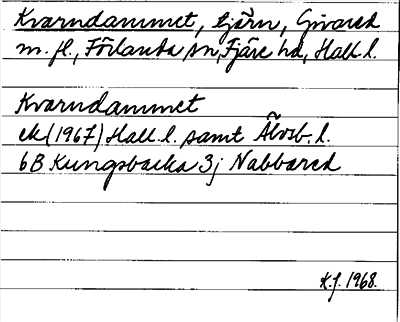 Kvarndammet, tjärn, Givared
m.fl., Förlanda sn, Fjäre hd, Hall l.
Kvarndammet
ek (1967) Hall l. samt Älvsb. l.
6B Kungsbacka 3j Nabbared
K.f. 1968.